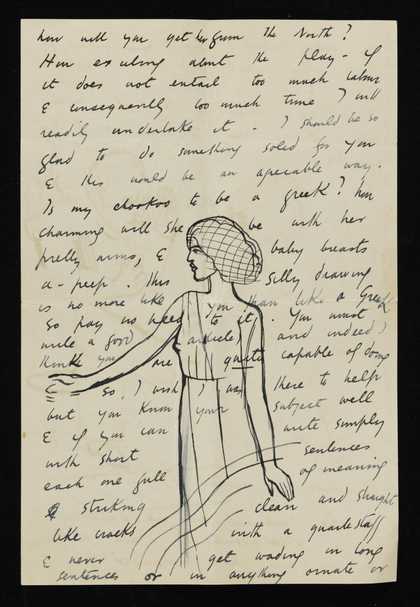 how will you get her from the North?
How exciting about the play - if
it does not entail too much labour
& consequently too much time I will
readily undertake it - I should be so
glad to do something solid for you
& this would be an agreeable way.
Is my chookoo to be a greek? how
charming will she be with her
pretty arms, & baby breasts
a-peep. This silly drawing
is no more like you than like a Greek
so pay no heed to it. You must
write a good article, and indeed I
think you are quite capable of doing
so, I wish I was there to help
but you know your subject well
& if you can write simply
with short sentences
each one full of meaning
& striking clean and straight
like cracks with a quarterstaff
& never get wading in long
sentences or in anything ornate or